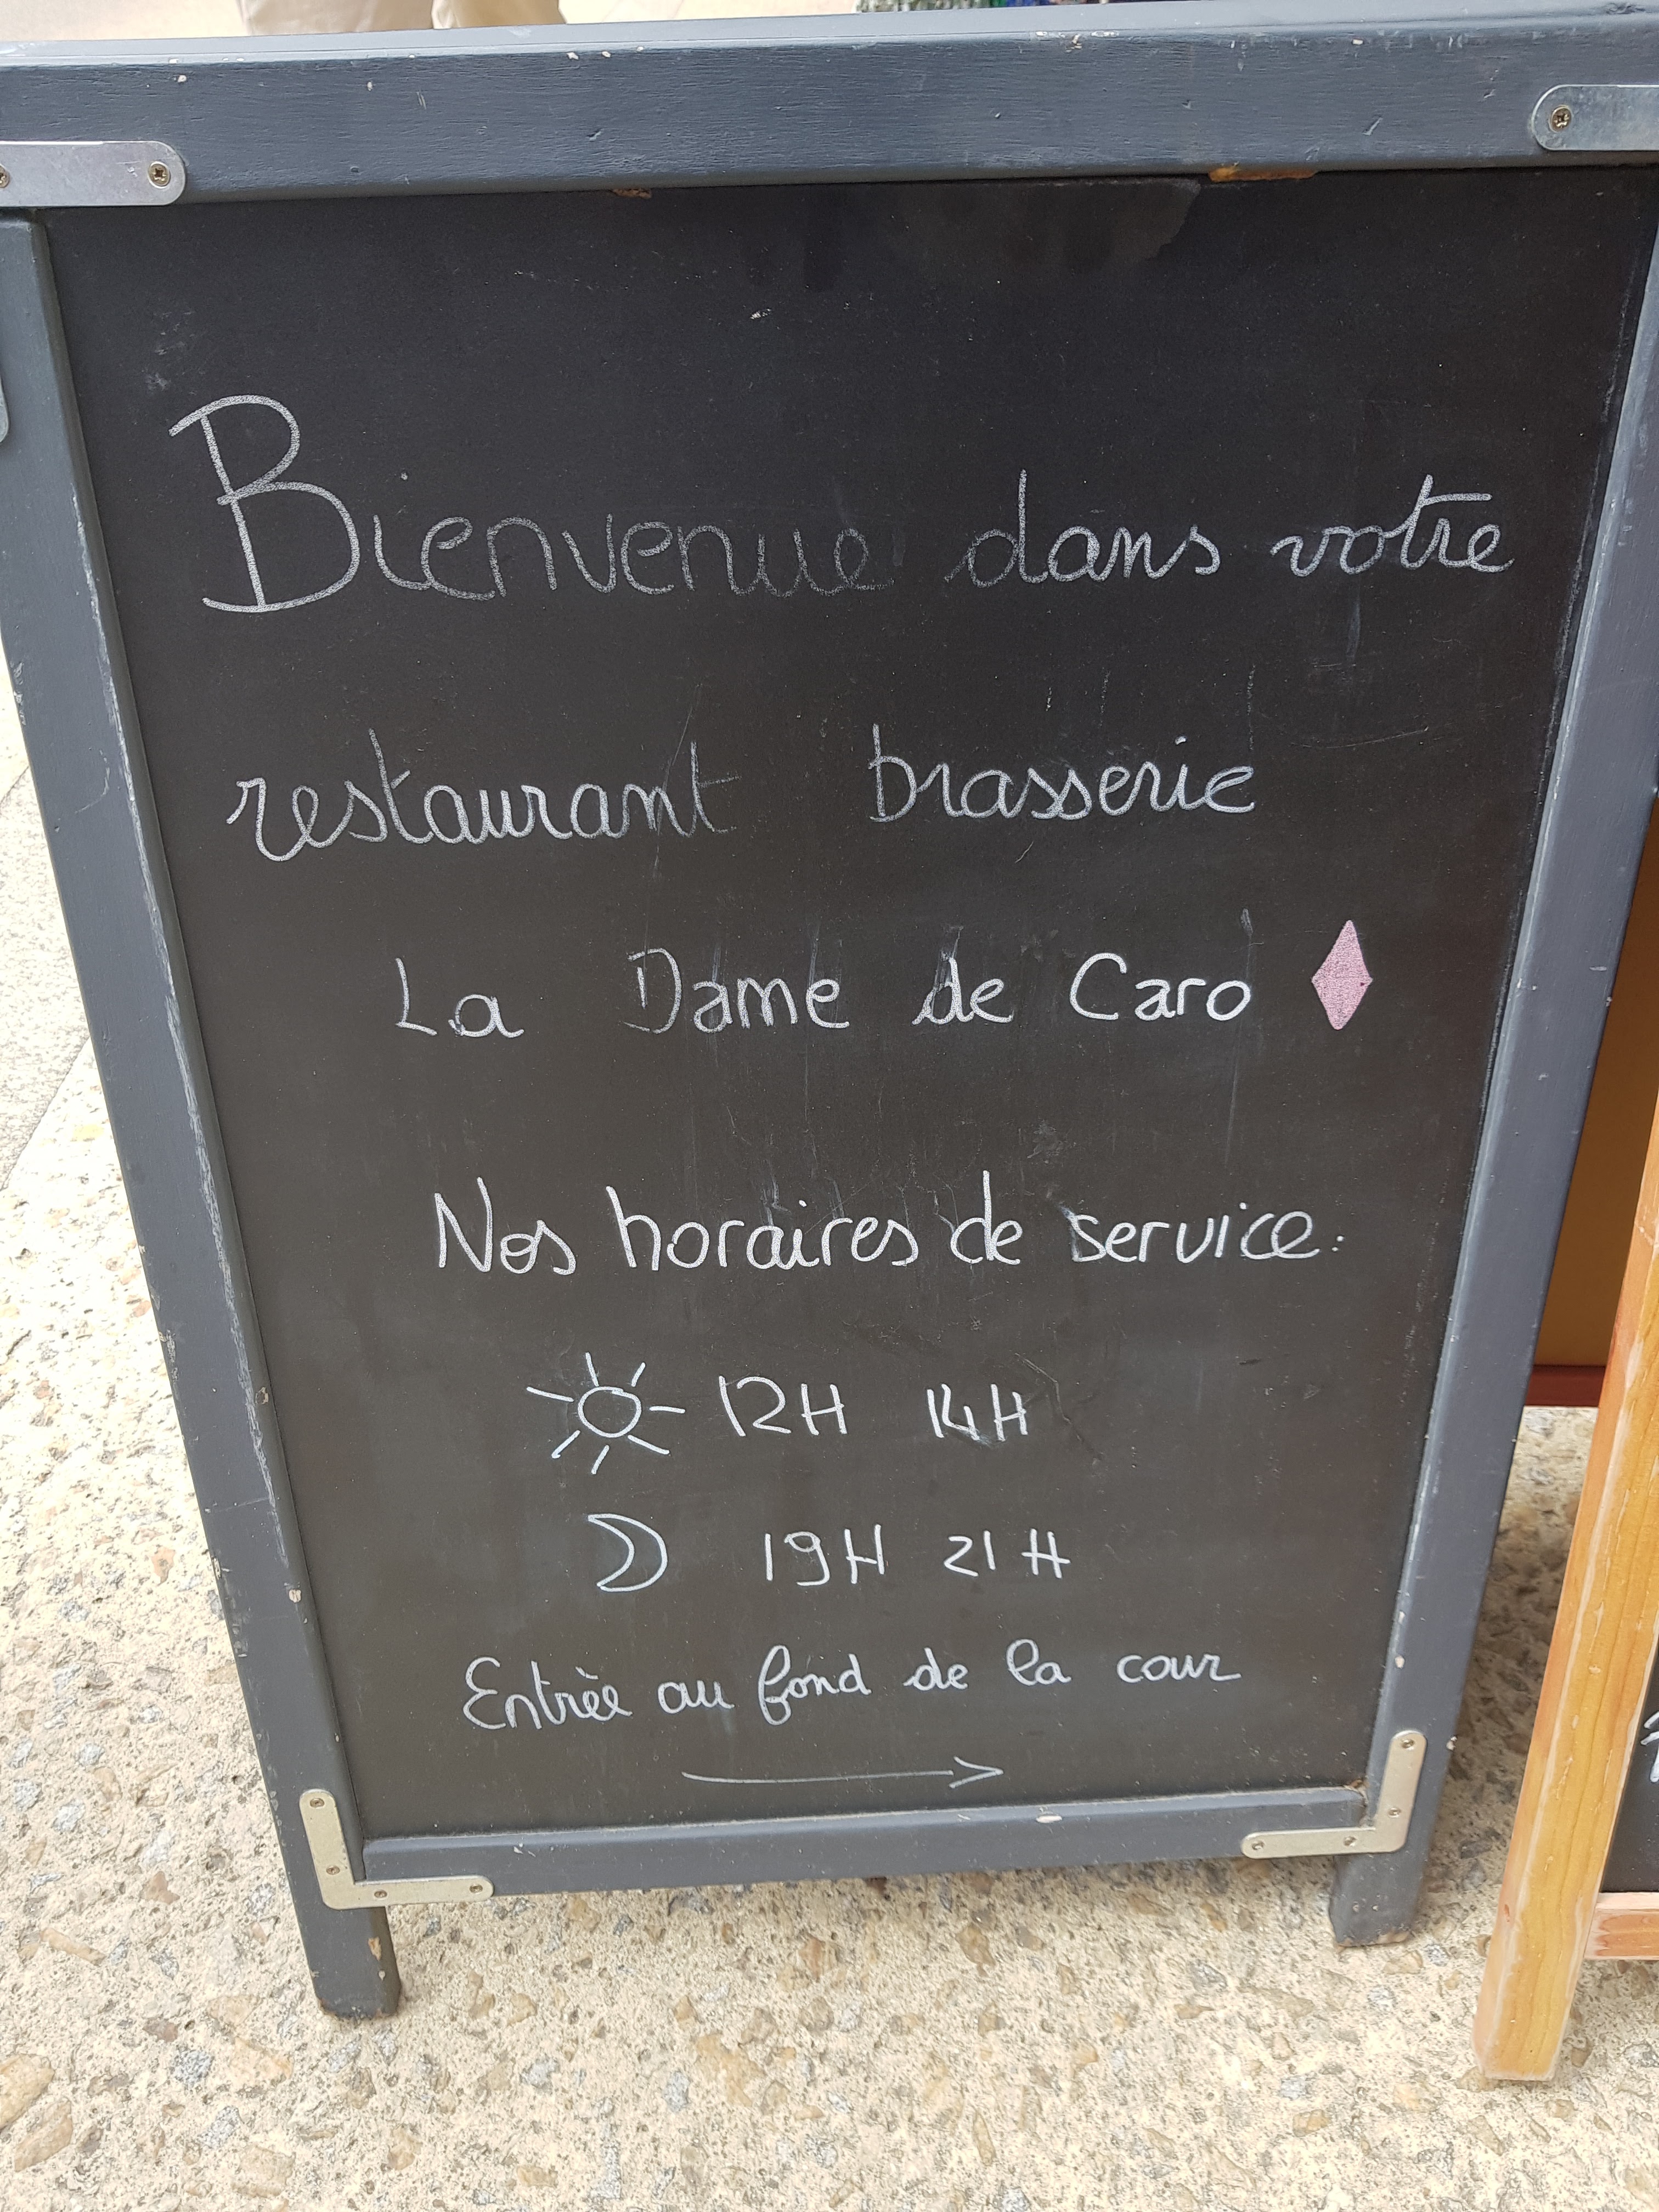 Bienvenue dans votre
restaurant brasserie
La Dame de Caro
Nos horaires de service:
12H 14H
19H 21H
Entrée au fond de la cour